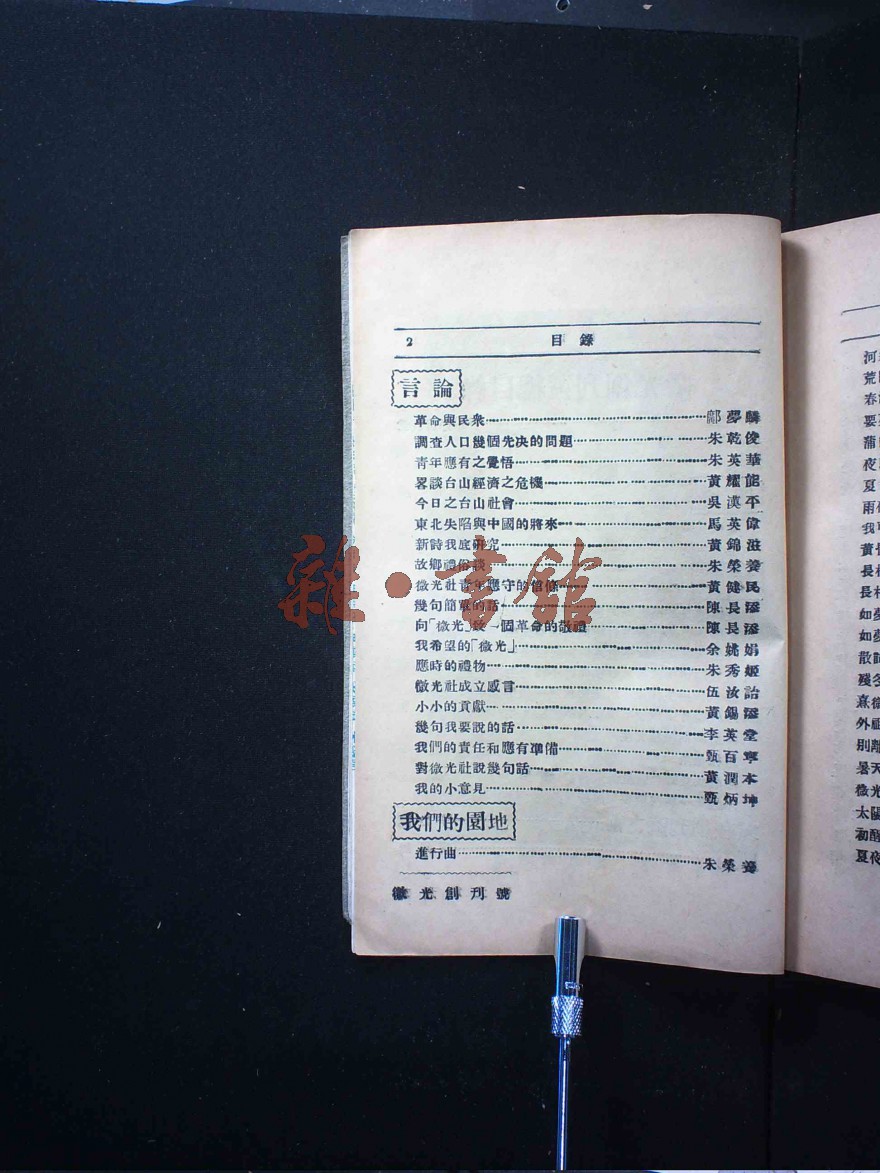 2 目錄
言論
革命與民衆 鄺夢麟
調查人口幾個先决的問題 朱乾俊
青年應有之覺悟 朱英華
畧談台山經濟之危機 黃耀能
今日之台山社會 吳漠平
東北失陷與中國的將來 馬英偉
新詩我底研究 黃錦滋
故鄉禮俗談 朱榮養
微光社靑年應守的信條 黃健民
幾句簡單的話 陳長澤
向「微光」致一個革命的敬禮 陳長澤
我希望的「微光」 余姚娟
應時的禮物 朱秀姬
微光社成立感言 伍汝詒
小小的貢獻 黃錫
幾句我要說的話 李英堂
我們的責任和應有準備 甄百寧
對微光社說幾句話 黃潤本
我的小意見 甄炳坤
我們的園地
進行曲 朱榮養
微光創刊號
雜·書館
河
荒
春
要
蒲
夜
夏
雨
我
黃
長
長
如
如
散
殘
熹
外
別離
暮天
微光
太陽
初醒
夏夜